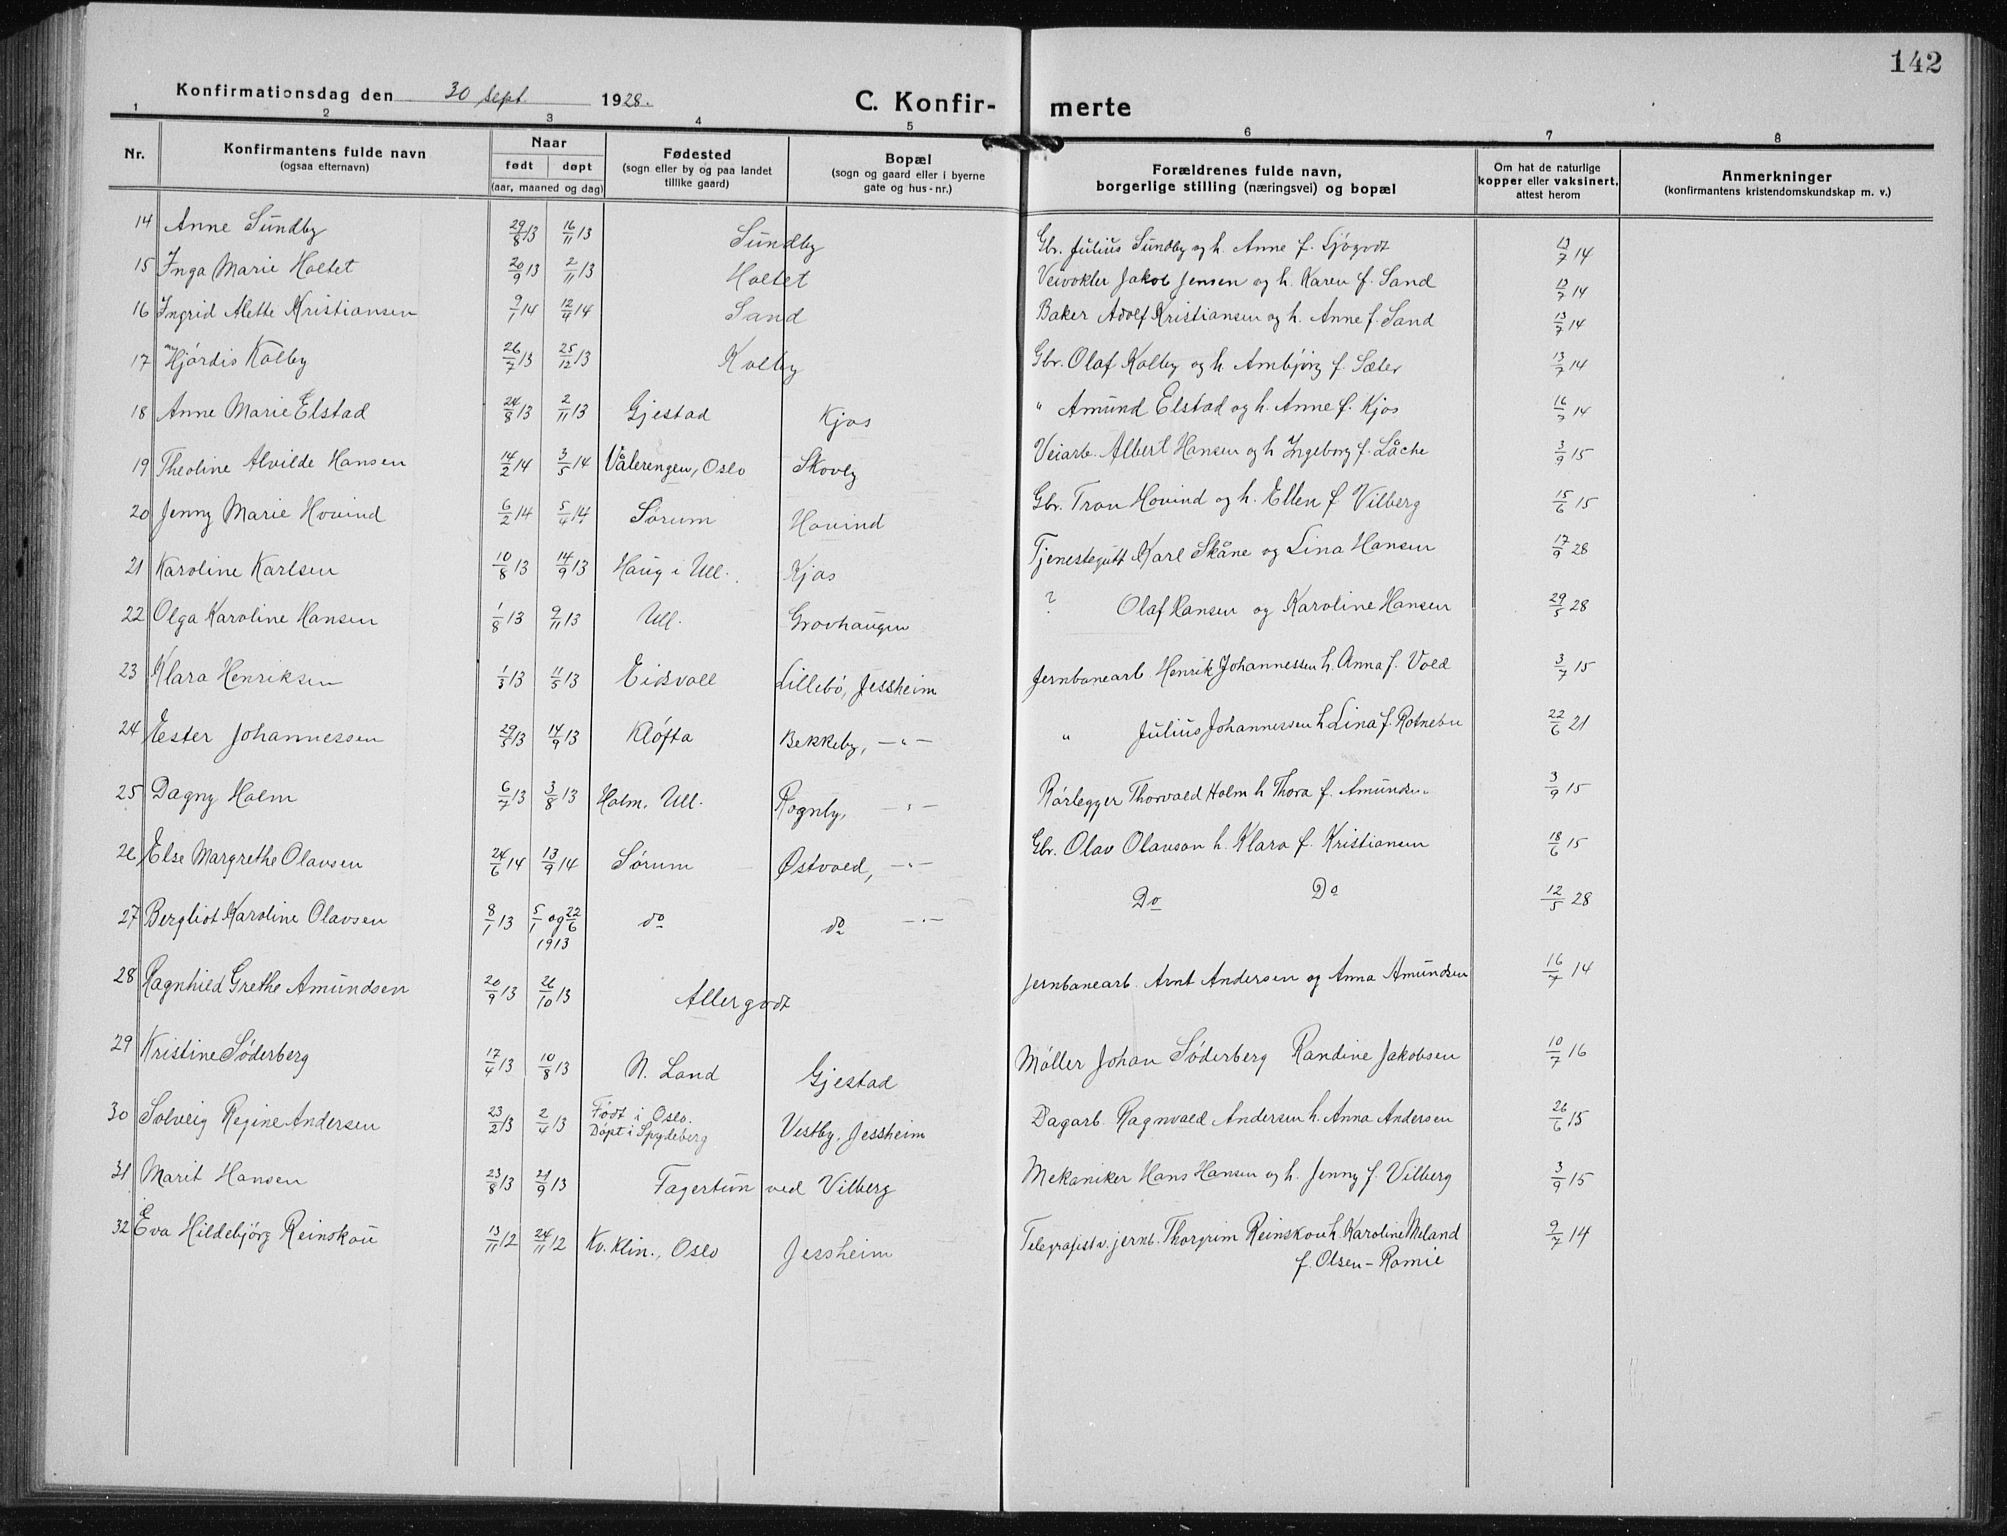 142
Konfirmationsdag den 30 sept. 1928.
C. Konfir- merte
1 2 3 4 5 6 7 8
Nr. Konfirmantens fulde navn (ogsaa efternavn) Naar født døpt (aar, maaned og dag) Fødested (sogn eller by og paa landet tillike gaard) Bopæl (sogn og gaard eller i byerne gate og hus-nr.) Forældrenes fulde navn, borgerlige stilling (næringsvei) og bopæl Om hat de naturlige kopper eller vaksinert, attest herom Anmerkninger (konfirmantens kristendomskundskap m. v.)
14 Anne Sundby 29/8 13 16/11 13 Sundby Gbr. Julius Sundby og h. Anne f. Ljøgodt 13/7 14
15 Inga Marie Holtet 20/9 13 2/11 13 Holtet Veivokter Jakob Jensen og h. Karen f. Sand 13/7 14
16 Ingrid Alette Kristiansen 9/1 14 12/4 14 Sand Baker Adolf Kristiansen og h. Anne f. Sand 13/7 14
17 Hjørdis Kolby 26/7 13 25/12 13 Kolby Gbr. Olaf Kolby og h. Ambjørg f. Sæter 13/7 14
18 Anne Marie Elstad 24/8 13 2/11 13 Gjestad Kjos " Amund Elstad og h. Anne f. Kjos 16/7 14
19 Theoline Alvilde Hansen 14/2 14 3/5 14 Vålerengen, Oslo Skovly Veiarb. Albert Hansen og h Ingeborg f. Låche 3/9 15
20 Jenny Marie Hovind 6/2 14 5/4 14 Sørum Hovind Gbr. Tron Hovind og h. Ellen f Vilberg 15/6 15
21 Karoline Karlsen 10/8 13 14/9 13 Haug i Ull. Kjos Tjenestegutt Karl Skåne og Lina Hansen 17/9 28
22 Olga Karoline Hansen 1/8 13 9/11 13 Ull. Grovhaugen ? Olaf Hansen og Karoline Hansen 29/5 28
23 Klara Henriksen 1/3 13 11/5 13 Eidsvoll Lillebø, Jessheim Jernbanearb. Henrik Johannessen h. Anna f. Vold 3/7 15
24 Ester Johannessen 29/5 13 14/9 13 Kløfta Bekkeby, —"— " Julius Johannessen h Lina f. Rotnebu 22/6 21
25 Dagny Holm 6/7 13 3/8 13 Holm, Ull. Rognby, —"— Rørlegger Thorvald Holm h Thora f. Amundsen 3/9 15
26 Else Margrethe Olavsen 24/6 14 13/9 14 Sørum Østvold, —"— Gbr. Olav Olavson h. Klara f. Kristiansen 18/6 15
27 Bergliot Karoline Olavsen 8/1 13 5/1 og 22/6 1913 do do —"— Do Do 12/5 28
28 Ragnhild Grethe Amundsen 20/9 13 26/10 13 Allergodt Jernbanearb. Arnt Andersen og Anna Amundsen 16/7 14
29 Kristine Søderberg 17/4 13 10/8 13 N. Land Gjestad Møller Johan Søderberg Randine Jakobsen 10/7 16
30 Solveig Regine Andersen 23/2 13 2/4 13 Født i Oslo. Døpt i Spydeberg Vestby, Jessheim Dagarb. Ragnvald Andersen h. Anna Andersen 26/6 15
31 Marit Hansen 23/8 13 21/9 13 Fagertun ved Vilberg Mekaniker Hans Hansen og h. Jenny f. Vilberg 3/9 15
32 Eva Hildebjørg Reinskou 13/11 12 24/11 12 Kv. klin., Oslo Jessheim Telegrafist v. jernb. Thorgrim Reinskou h. Karoline Meland 9/7 14
f. Olsen-Romie